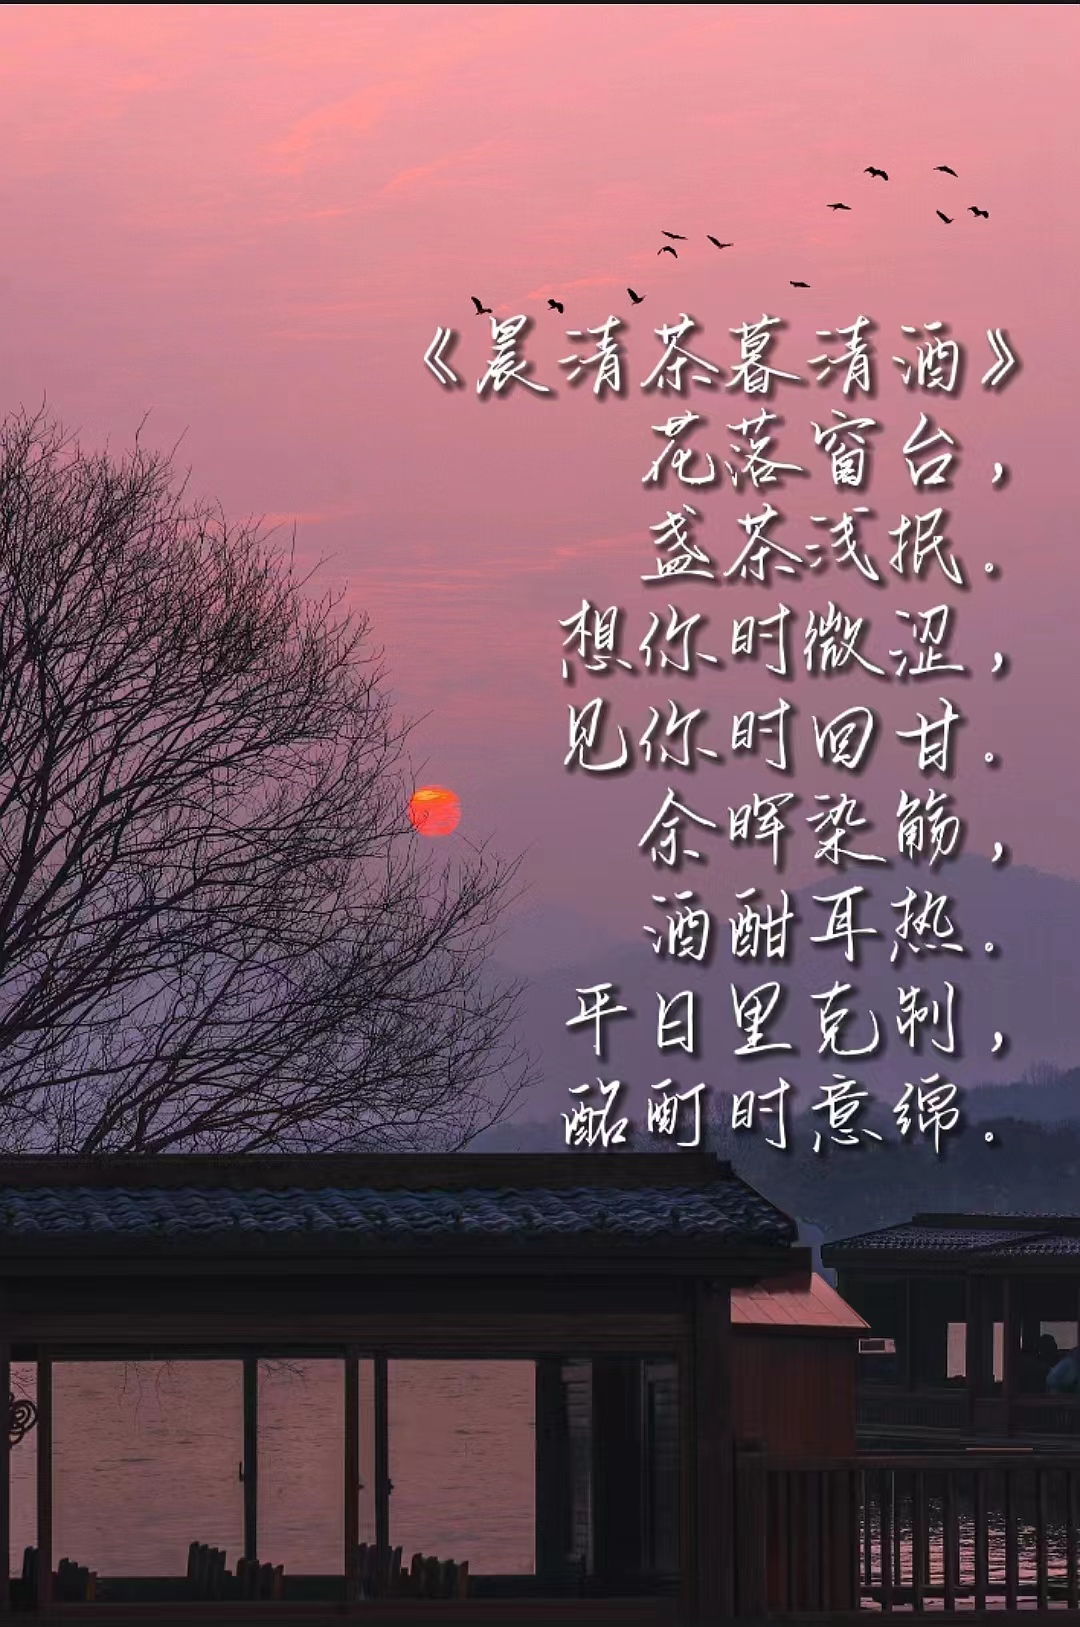 《晨清茶暮清酒》
花落窗台，
盏茶浅抿.
想你时微涩，
见你时回甘.
余晖染觞，
酒酣耳热.
平日里克制，
酩酊时意绵.